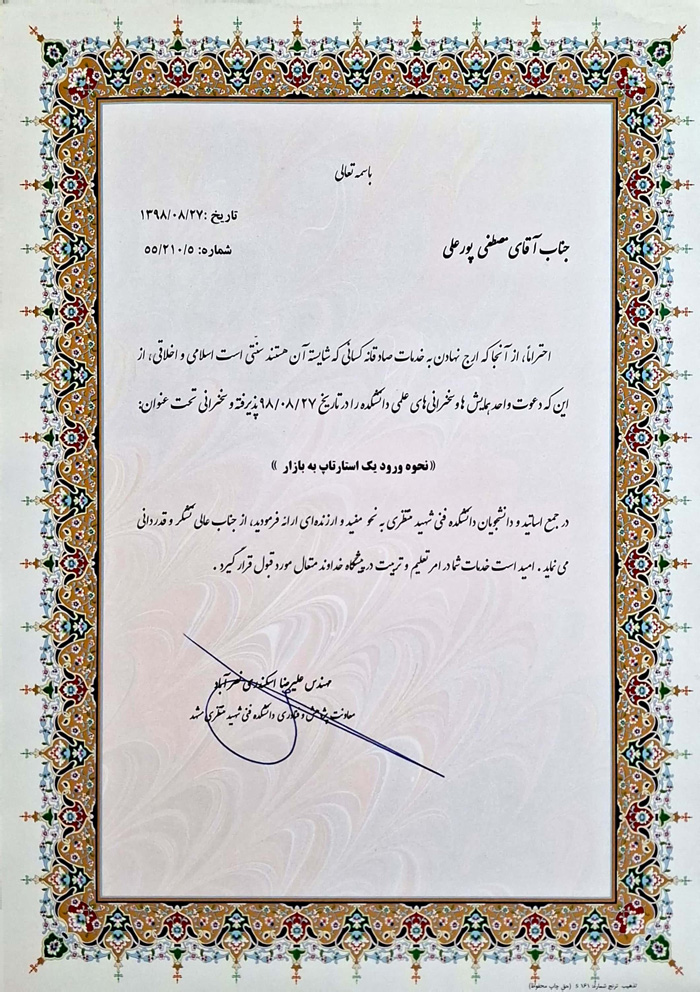 باسمه تعالی
تاریخ :۱۳۹۸/۰۸/۲۷
جناب آقای مصطفی پورعلی
شماره: ۵۵/۲۱۰/۵
احتراماً، از آنجا که ارج نهادن به خدمات صادقانه کسانی که شایسته آن هستند سنتی است اسلامی و اخلاقی، از
این که دعوت واحد همایش ها و سخنرانی های علمی دانشکده را در تاریخ ۹۸/۰۸/۲۷ پذیرفته و سخنرانی تحت عنوان:
«نحوه ورود یک استارتاپ به بازار »
در جمع اساتید و دانشجویان دانشکده فنی شهید منتظری به نحو مفید و ارزنده‌ای ارائه فرمودید، از جناب عالی تشکر و قدردانی
می نماید . امید است خدمات شما در امر تعلیم و تربیت در پیشگاه خداوند متعال مورد قبول قرار گیرد .
مهندس علیرضا اسکندری نصرآباد
معاونت پژوهش و فناوری دانشکده فنی شهید منتظری مشهد
تذهیب ترنج شماره: ۱۶۱ S (حق چاپ محفوظ)